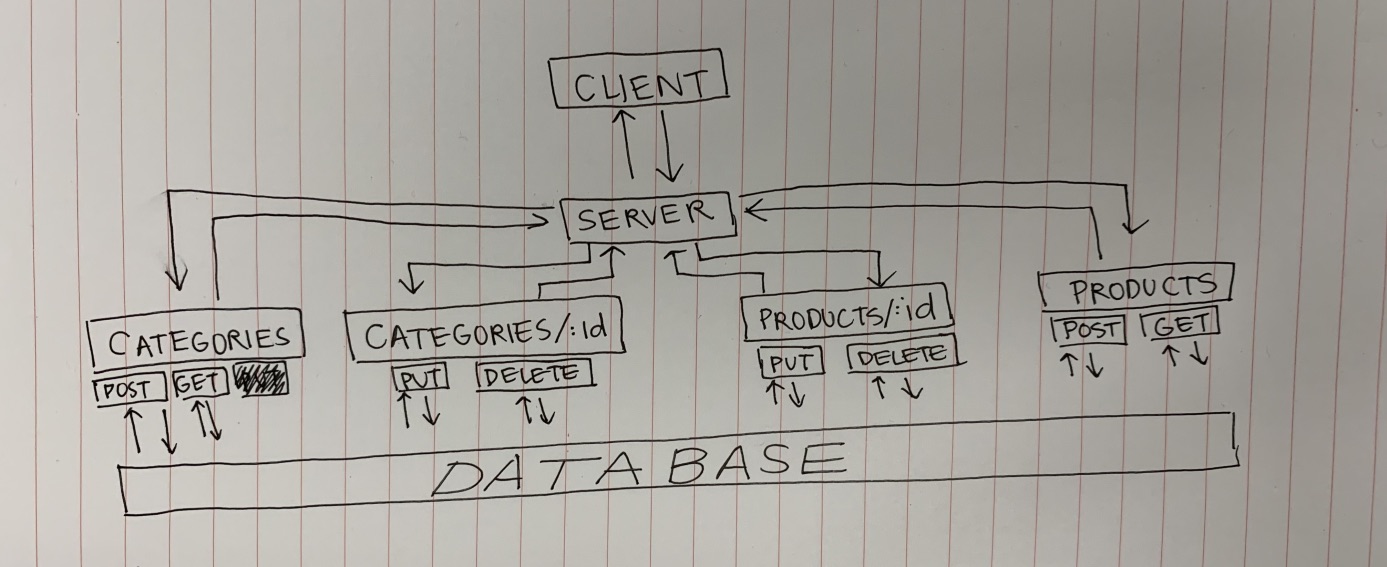 CLIENT
SERVER
CATEGORIES
POST GET
CATEGORIES/:id
PUT DELETE
PRODUCTS/:id
PUT DELETE
PRODUCTS
POST GET
DATABASE